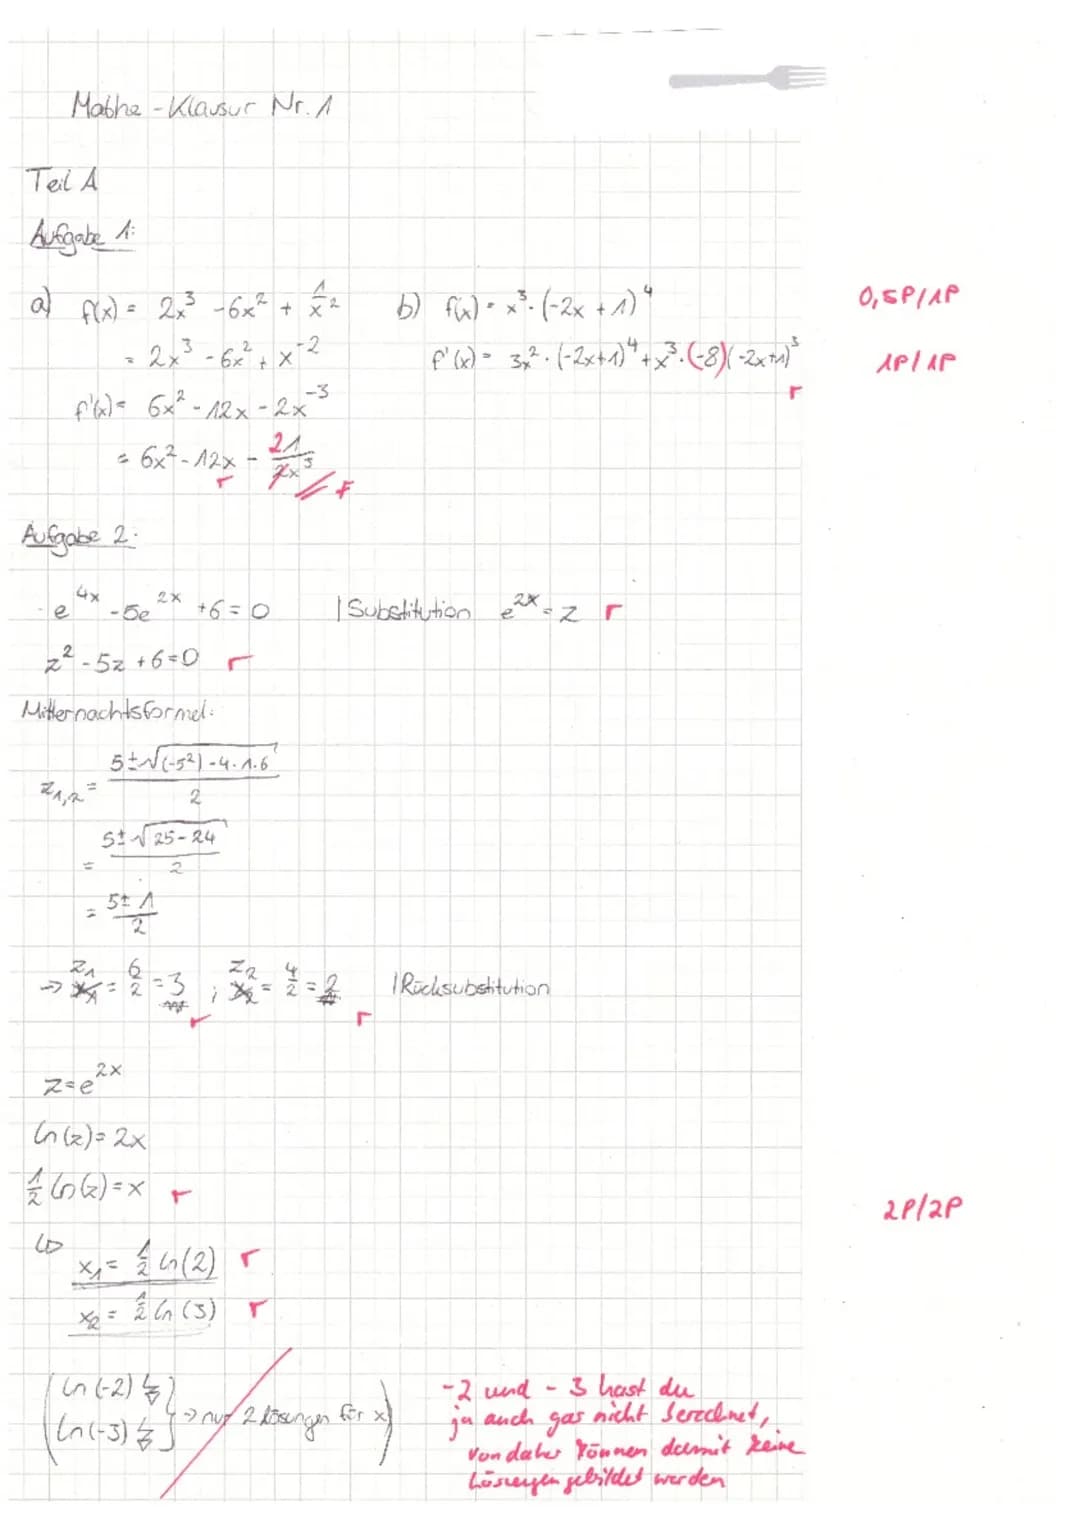 Mathe - Klausur Nr. 1
Teil A
Aufgabe 1:
a) f(x) = 2x³ - 6x² + 1/x² b) f(x) = x³ · (-2x + 1)⁴ 0,5P/1P
= 2x³ - 6x² + x⁻² f'(x) = 3x² · (-2x+1)⁴ + x³ · (-8)(-2x+1)³ 1P/1P
r
f'(x) = 6x² - 12x - 2x⁻³
= 6x² - 12x - 21/2x³
r F
Aufgabe 2:
e⁴ˣ - 5e²ˣ + 6 = 0 | Substitution e²ˣ = z r
z² - 5z + 6 = 0 r
Mitternachtsformel:
z₁,₂ = (5 ± √((-5²) - 4 · 1 · 6))/2
= (5 ± √(25 - 24))/2
= (5 ± 1)/2
→ z₁ = 6/2 = 3 ; z₂ = 4/2 = 2 | Rücksubstitution
r r
z = e²ˣ
ln(z) = 2x
1/2 ln(z) = x r
2P/2P
↳ x₁ = 1/2 ln(2) r
x₂ = 1/2 ln(3) r
(ln(-2) ↯
ln(-3) ↯ } → nur 2 Lösungen für x)
-2 und -3 hast du
ja auch gar nicht berechnet,
von daher können damit keine
Lösungen gebildet werden